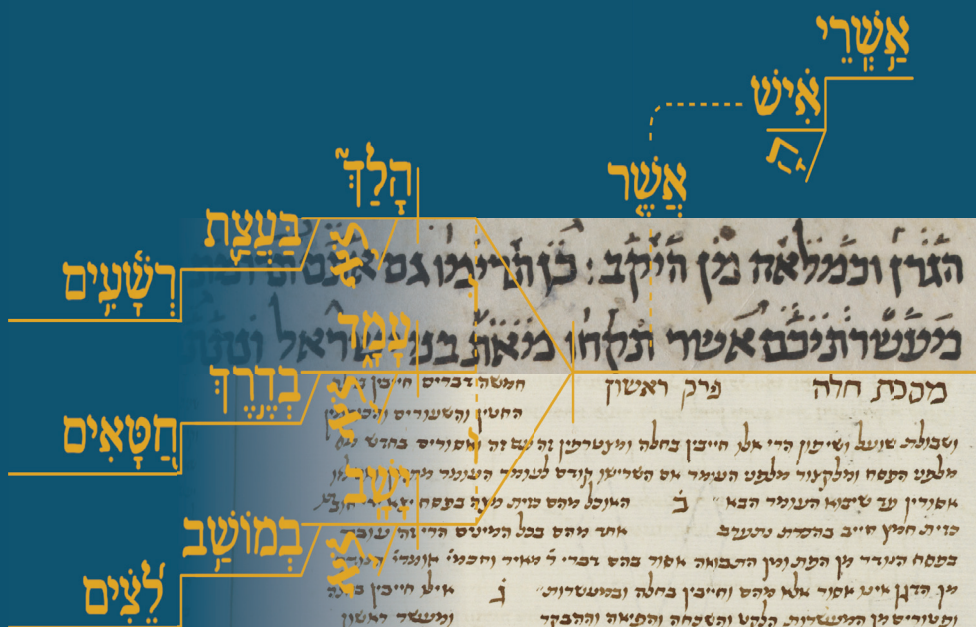 אַשְׁרֵי
אִישׁ
הָ
אֲשֶׁר
הָלַךְ
לֹא
בַּעֲצַת
רְשָׁעִים
עָמָד
לֹא
בְדֶרֶךְ
חַטָּאִים
יָשָׁב
לֹא
בְמוֹשַׁב
לֵצִים
הגרן וכמלאה מן היקב : כן תרימו גם אתם
מעשרתיכם אשר תקחו מאת בני ישראל
מסכת חלה פרק ראשון חמשה דברים חייבין
החטין והשעורים והכוסמין
ושבולת שועל ושיפון הרי אלו חייבין בחלה ומצטרפין זה עם זה ואסורים בחדש
מלפני הפסח ומלקצור מלפני העומר אם השרישו קודם לעומר העומר
אסורין עד שיבוא העומר הבא ב האוכל מהם כזית מצה בפסח יצא
כזית חמץ חייב בהכרת נתערב אחד מהם בכל המינים הרי זה עובר
בפסח הנודר מן הפת ומן התבואה אסור בהם דברי ר' מאיר וחכמי' אומרי'
מן הדגן אינו אסור אלא מהם וחייבין בחלה ובמעשרות ג אילו חייבין
ופטורים מן המעשרות הלקט והשכחה והפיאה וההבקר ומעשר ראשון